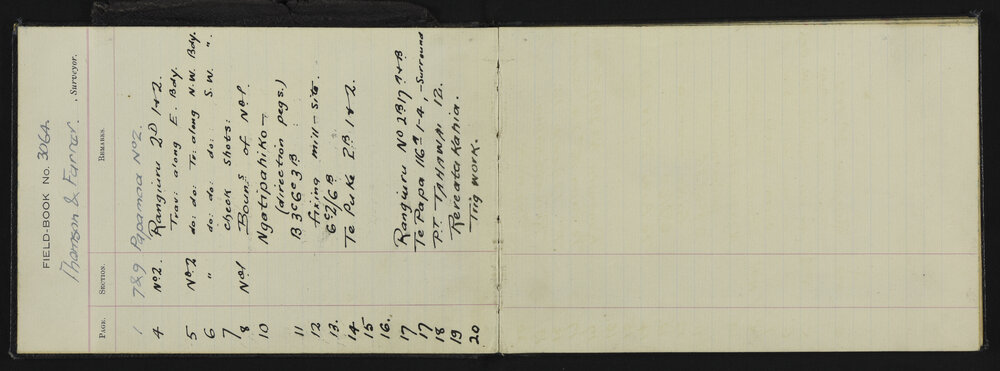 FIELD-BOOK No. 3064.
Thomson & Farrar. , Surveyor.
PAGE. SECTION. REMARKS.
1 7&9 Papamoa No2.
4 No2. Rangiuru 2D 1+2.
Trav: along E. Bdy.
5 No2 do: do: Tr: along N.W. Bdy.
6 " do: do: do: S.W. ".
7 check shots:
8 No1 Bouns of No1.
10 Ngatipahiko—
(direction pegs.)
11 B3c6c3B
12 fixing mill-site.
13. 6c2/6B
14 Te Puke 2B 1+2
15
16.
17 Rangiuru No 2B17 A+B
17 Te Papa 116B 1-4, -Surround
18 PT TAHAWAI 12.
19 Rereatukahia.
20 Trig work.